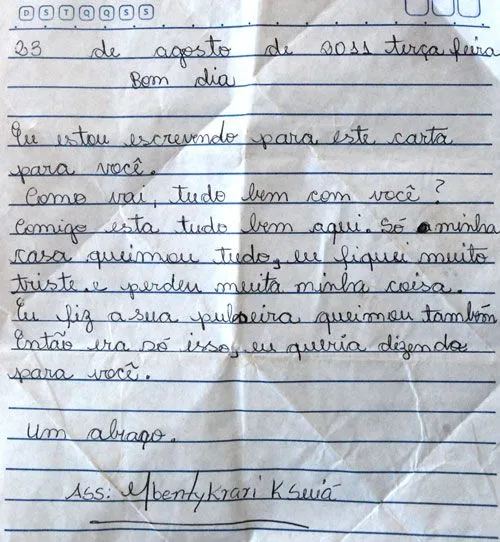 D S T Q Q S S
23 de agosto de 2011 terça feira
Bom dia
Eu estou escrevendo para este carta
para você.
Como vai, tudo bem com você?
Comigo esta tudo bem aqui. Só a minha
casa queimou tudo, eu fiquei muito
triste. e perdeu muita minha coisa.
Eu fiz a sua pulseira queimou também
Então era só isso, eu queria dizendo
para você.
Um abraço.
Ass: